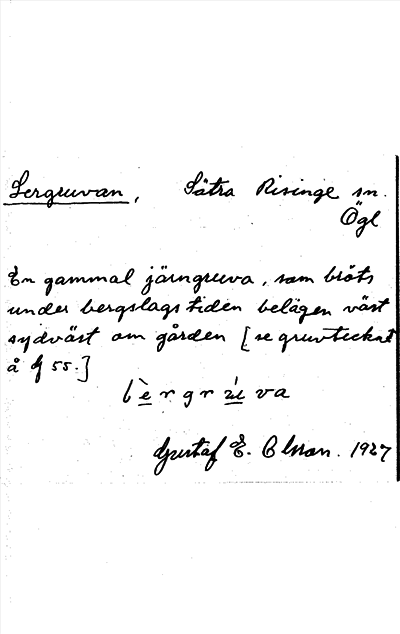 Lergruvan, Sätra Risinge sn.
Ögl
En gammal järngruva, som bröts
under bergslagstiden belägen väst
sydväst om gården [se gruvtecknet
å 55.]
lèrgrúva
Gustaf E. Olsson. 1927